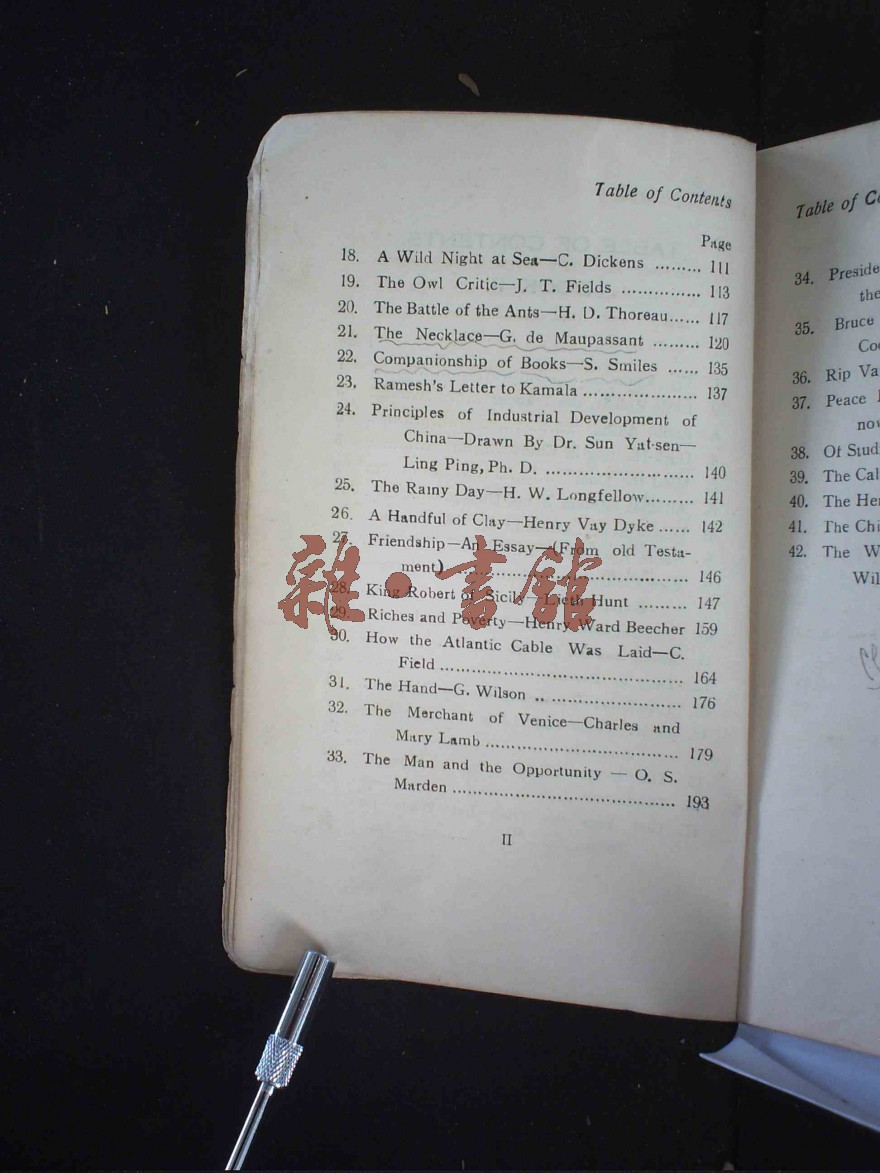 Table of Contents
Page
18. A Wild Night at Sea—C. Dickens ......... 111
19. The Owl Critic—J. T. Fields ............... 113
20. The Battle of the Ants—H. D. Thoreau...... 117
21. The Necklace—G. de Maupassant ......... 120
22. Companionship of Books—S. Smiles ...... 135
23. Ramesh's Letter to Kamala ..................... 137
24. Principles of Industrial Development of
China—Drawn By Dr. Sun Yat-sen—
Ling Ping, Ph. D. .......................... 140
25. The Rainy Day—H. W. Longfellow......... 141
26. A Handful of Clay—Henry Vay Dyke ...... 142
27. Friendship—An Essay—(From old Testa-
ment) .......................................... 146
28. King Robert of Sicily—Lieth Hunt ......... 147
29. Riches and Poverty—Henry Ward Beecher 159
30. How the Atlantic Cable Was Laid—C.
Field ........................................... 164
31. The Hand—G. Wilson .. ....................... 176
32. The Merchant of Venice—Charles and
Mary Lamb .................................. 179
33. The Man and the Opportunity — O. S.
Marden ........................................ 193
II
雜·書館
Table of
34.
the
35. Bruce
36. Rip
37. Peace
38. Of
39. The
40. The
41. The
42. The